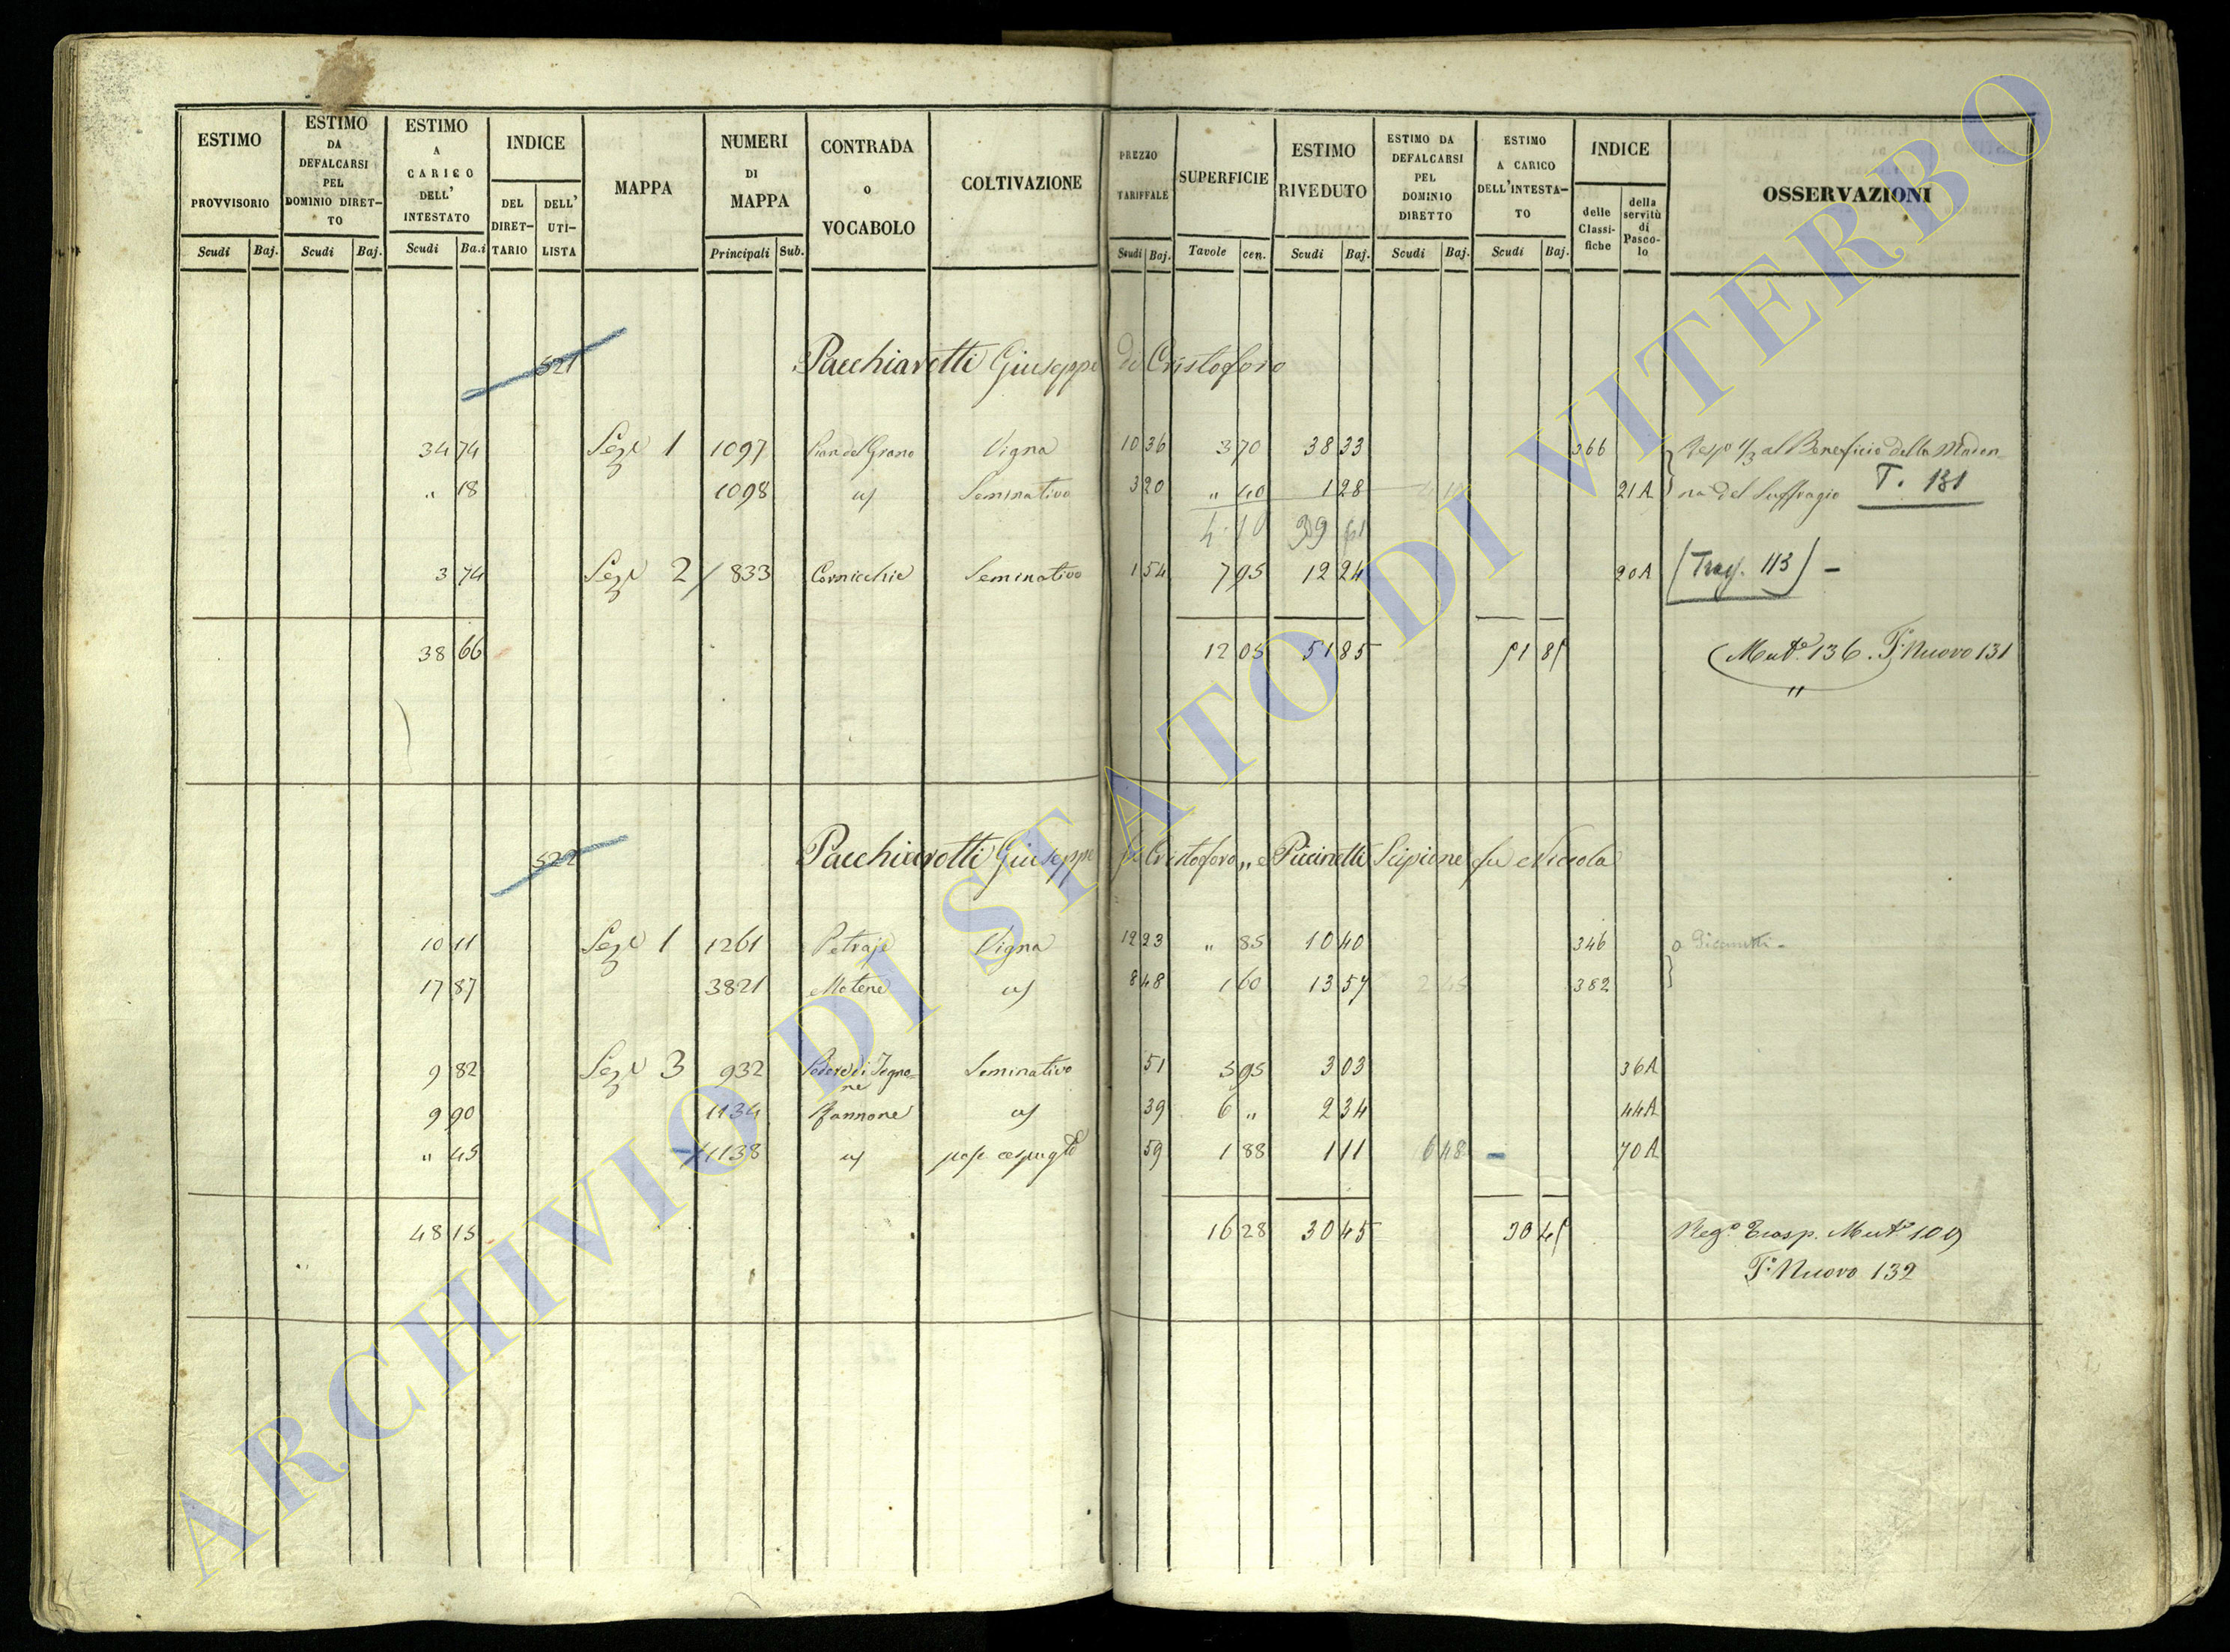 ESTIMO PROVVISORIO Scudi Baj.
ESTIMO DA DEFALCARSI PEL DOMINIO DIRET-TO Scudi Baj.
ESTIMO A CARICO DELL' INTESTATO Scudi Ba.i
INDICE DEL DIRET-TARIO DELL' UTI-LISTA
MAPPA
NUMERI DI MAPPA Principali Sub.
CONTRADA o VOCABOLO
COLTIVAZIONE
PREZZO TARIFFALE Scudi Baj.
SUPERFICIE Tavole cen.
ESTIMO RIVEDUTO Scudi Baj.
ESTIMO DA DEFALCARSI PEL DOMINIO DIRETTO Scudi Baj.
ESTIMO A CARICO DELL'INTESTA-TO Scudi Baj.
INDICE delle Classi-fiche della servitù di Pasco-lo
OSSERVAZIONI
521 Pacchiarotti Giuseppe di Cristoforo
34 74 Seze 1 1097 Pian del Grano Vigna 10 36 3 70 38 33 366 Resp 1/3 al Beneficio della Madon-
" 18 1098 Seminativo 3 20 " 40 1 28 21A na del Suffragio T. 131
4 10 39 61
3 74 Seze 2 833 Cornicchie Seminativo 1 54 7 95 12 24 20A (Trasf. 113) -
38 66 12 05 51 85 51 85 (Mut.e 136. T. Nuovo 131
"
522 Pacchiarotti Giuseppe di Cristoforo " e Piccinetti Scipione fu Niccola
10 11 Seze 1 1261 Petraje Vigna 12 23 " 85 10 40 346
17 87 3821 Matene 8 48 1 60 13 57 382
9 82 Seze 3 932 Seminativo 51 5 95 3 03 36A
9 90 1134 39 6 " 2 34 44A
" 45 1138 59 1 88 1 11 6 48 70A
48 15 16 28 30 45 30 45 Reg.o Trasp. Mut.e 109
T. Nuovo 132
ARCHIVIO DI STATO DI VITERBO